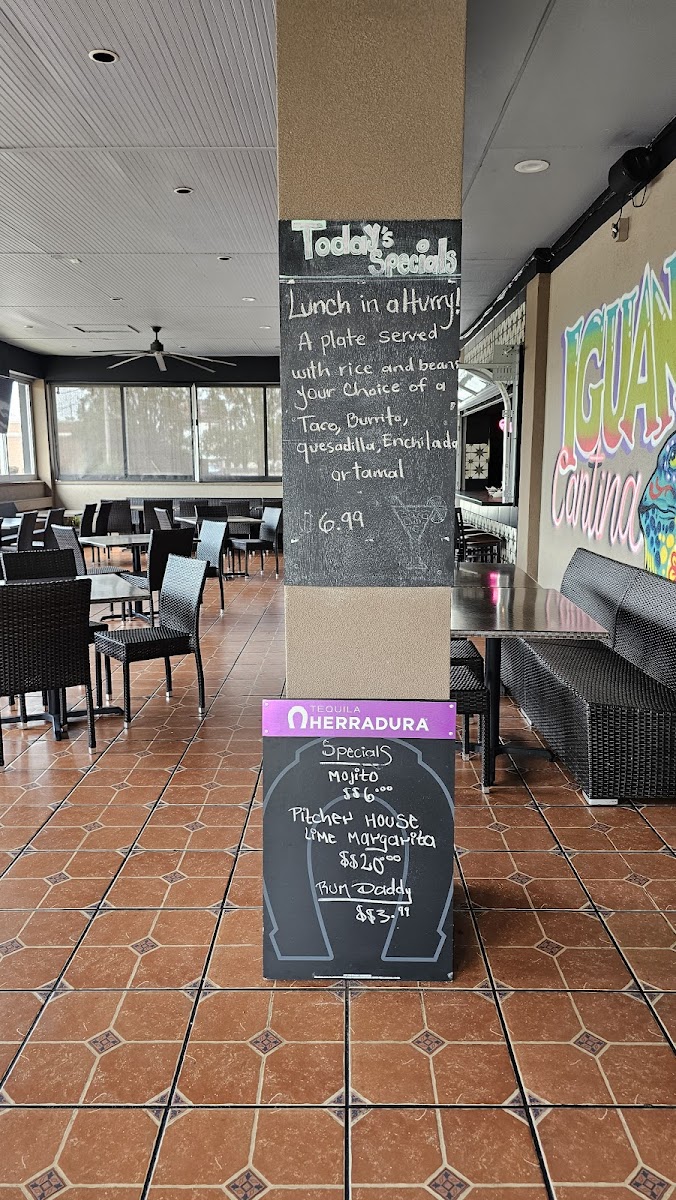 Today's
Specials
Lunch in a Hurry!
A plate served
with rice and beans
your choice of a
Taco, Burrito,
quesadilla, Enchilada
or tamal
$6.99
IGUAN
Cantina
TEQUILA
HERRADURA
Specials
Mojito
$$6.00
Pitcher House
Lime Margarita
$$20.00
Rum Daddy
$$3.99